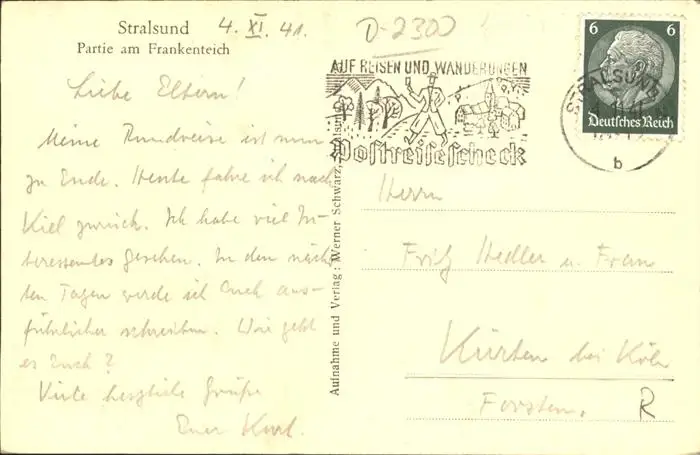 Stralsund 4. XI. 41.
Partie am Frankenteich
Liebe Eltern!
Meine Rundreise ist nun
zu Ende. Heute fahre ich nach
Kiel zurück. Ich habe viel In-
teressantes gesehen. In den näch-
sten Tagen werde ich Euch aus-
führlicher schreiben. Wie geht
es Euch?
Viele herzliche Grüße
Euer Kurt.
Aufnahme und Verlag: Werner Schwarz,
D-2300
AUF REISEN UND WANDERUNGEN
Postreisescheck
STRALSUND
b
6 6
Deutsches Reich
Herrn
Fritz Hedler u. Frau
Kürten bei Köln
Forsten.
R